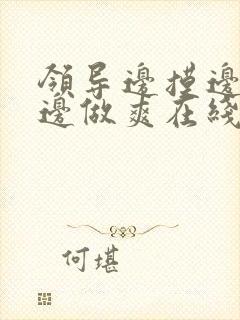 領导邊摸邊
邊做爽在綫
何堪